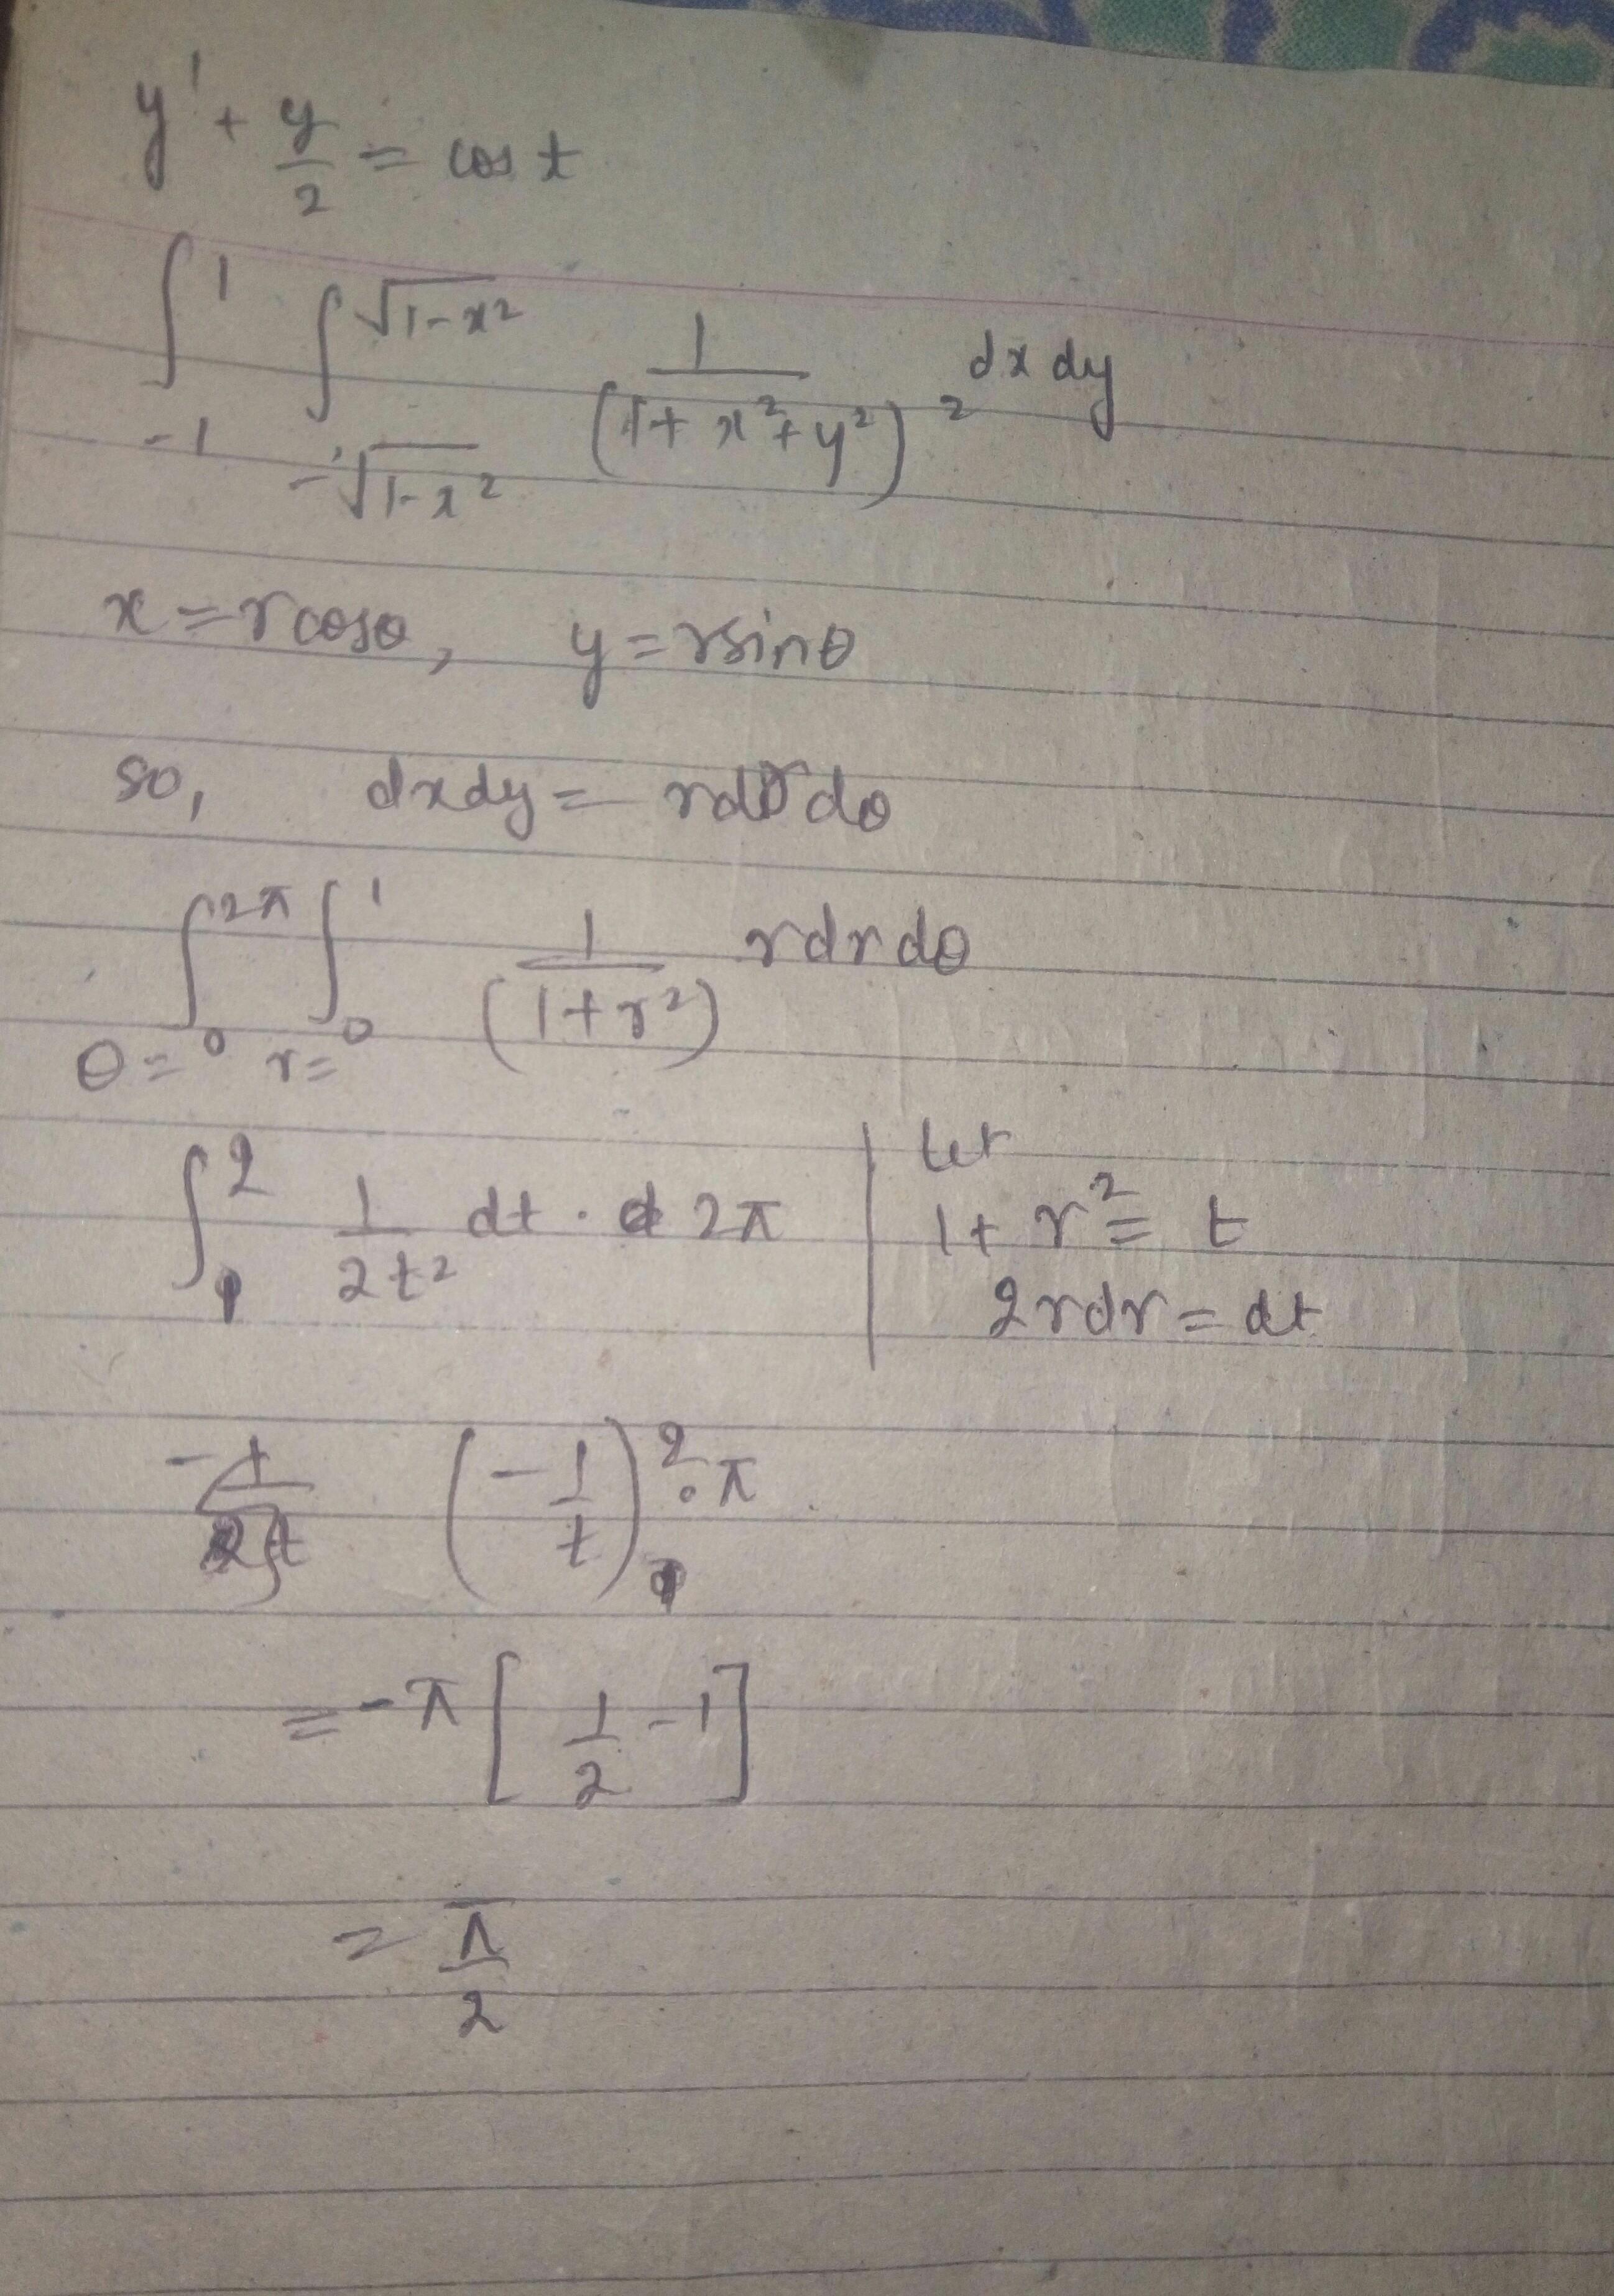 y' + y/2 = cos t
∫_{-1}^{1} ∫_{-√(1-x²)}^{√(1-x²)} 1/(1+x²+y²)² dx dy
x = r cosθ, y = r sinθ
so, dxdy = rdrdθ
∫_{θ=0}^{2π} ∫_{r=0}^{1} 1/(1+r²) rdrdθ
∫_{1}^{2} 1/2t² dt · 2π
Let
1+r² = t
2rdr = dt
(-1/t)_{1}^{2} · π
= -π [1/2 - 1]
= π/2